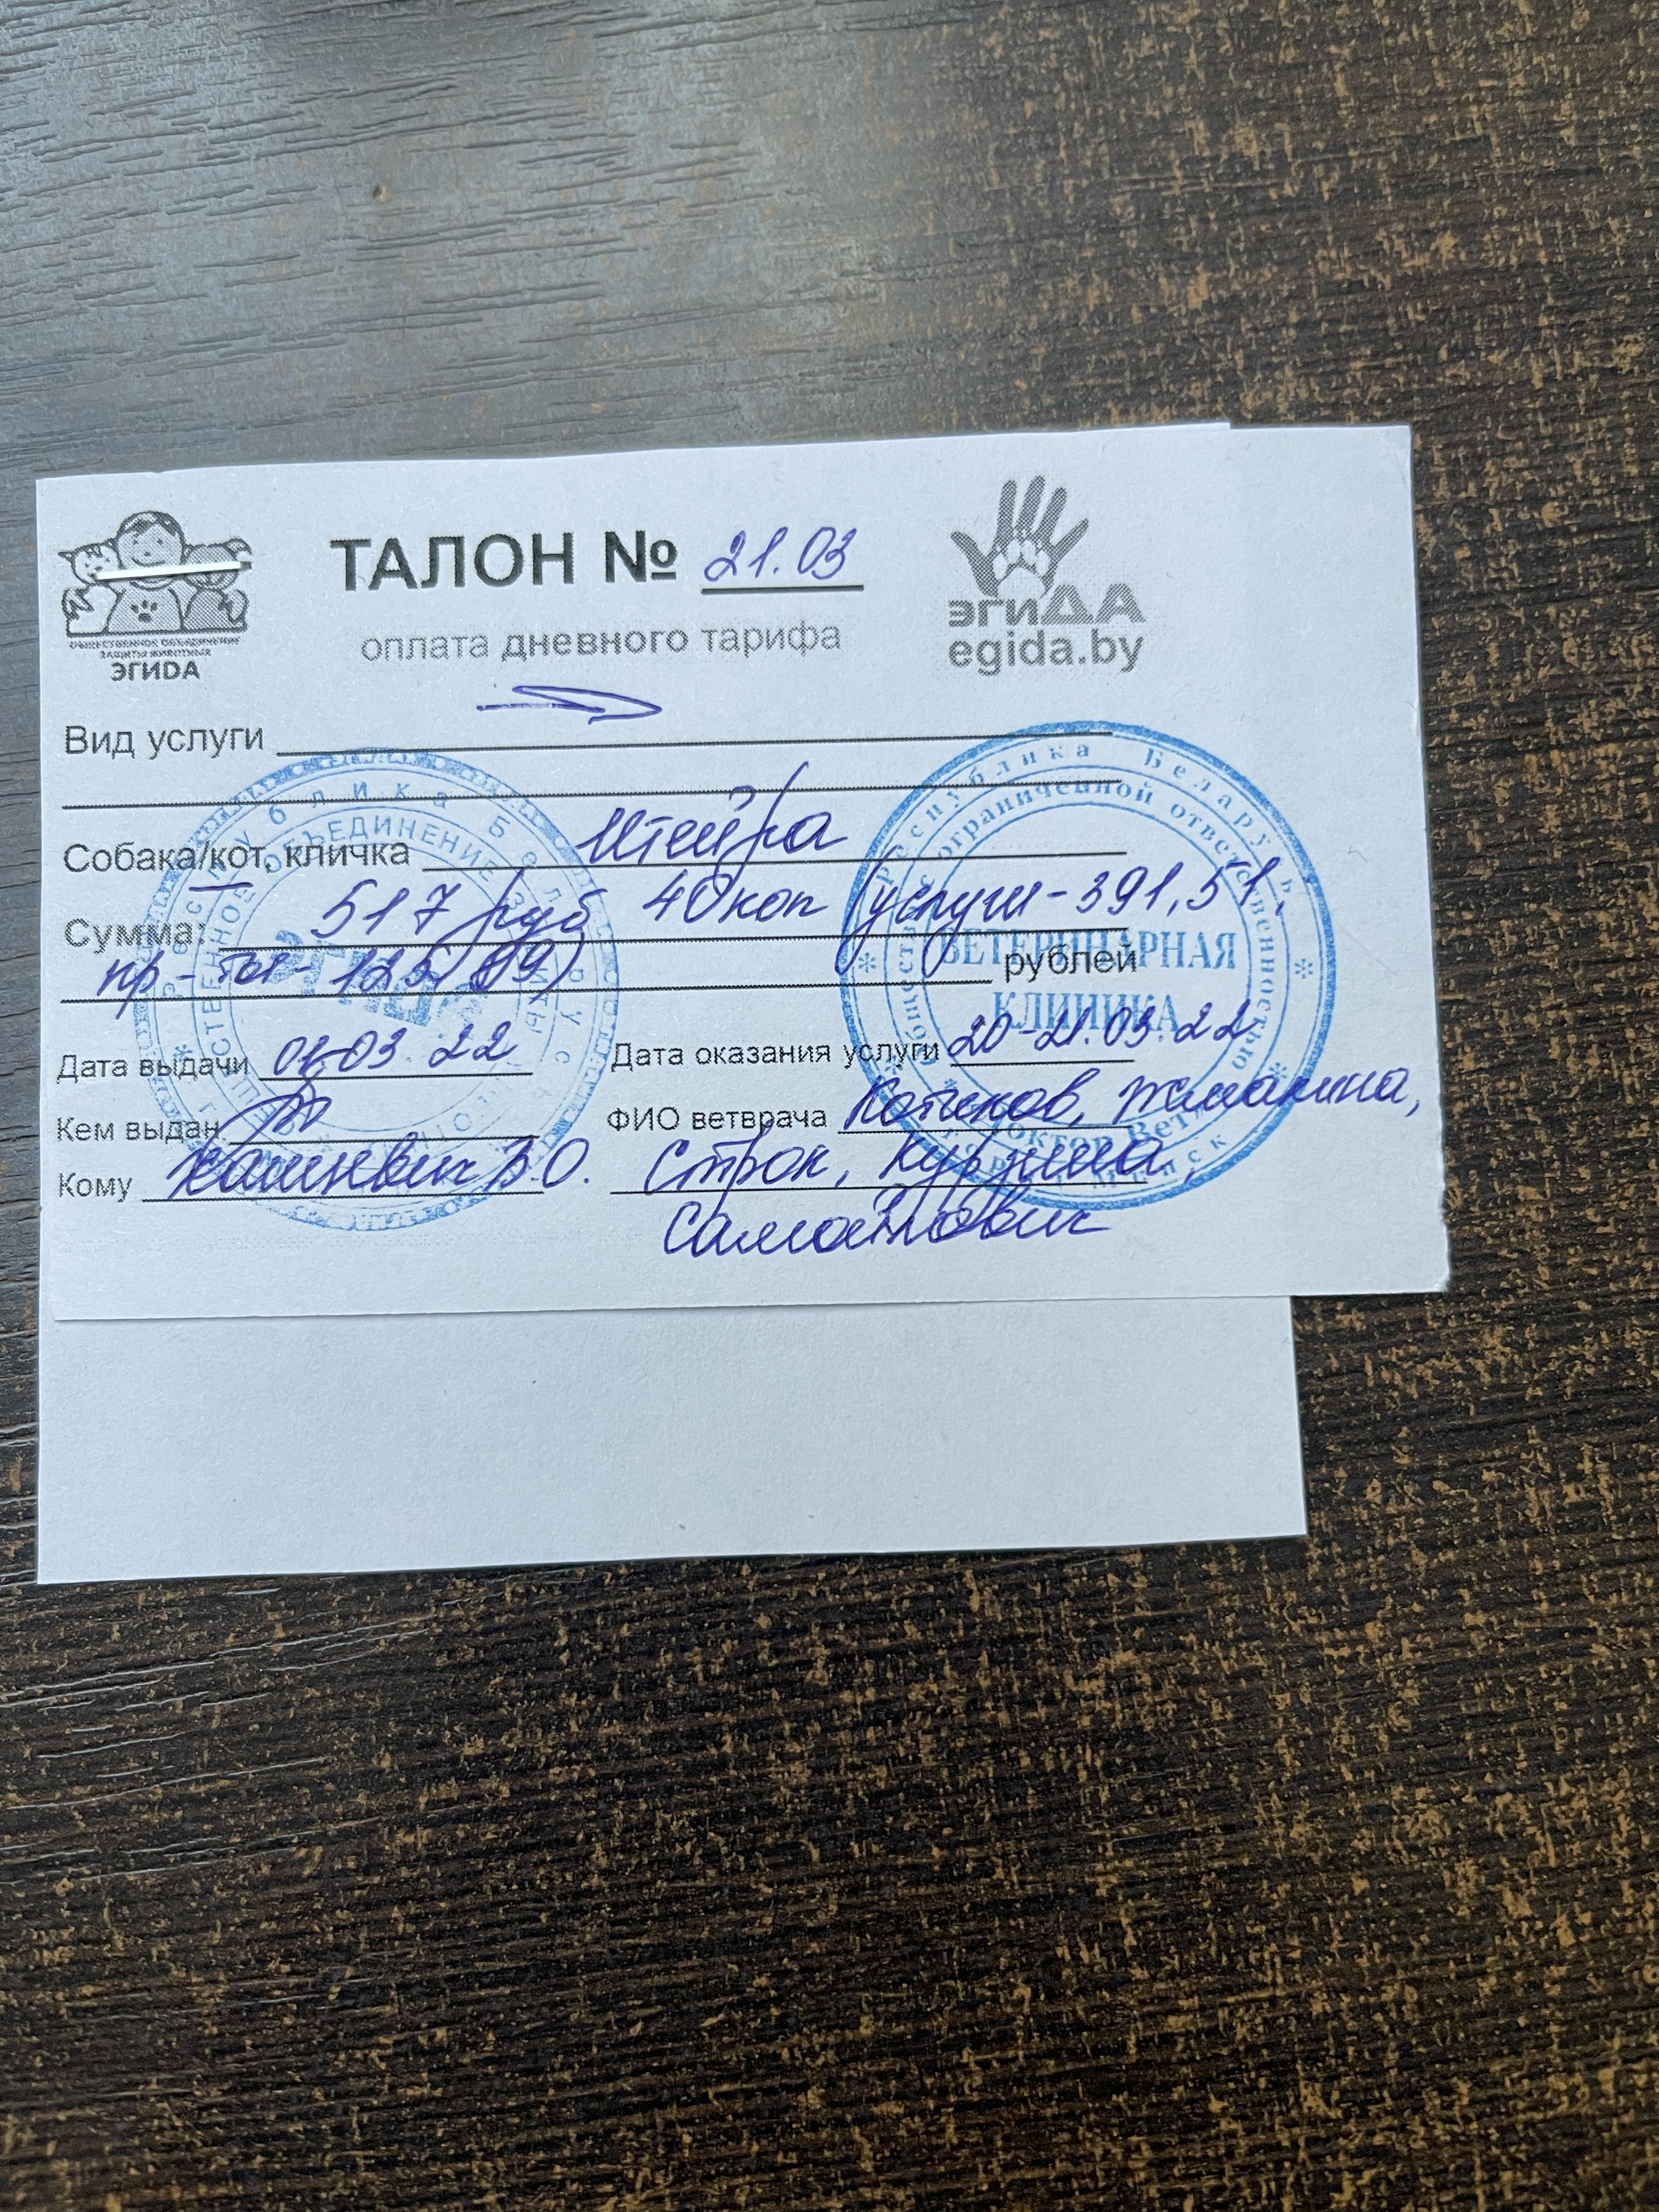 ТАЛОН № 21.03
оплата дневного тарифа
ОБЩЕСТВЕННОЕ ОБЪЕДИНЕНИЕ
ЗАЩИТЫ ЖИВОТНЫХ
ЭГИДА
эгиДА
egida.by
Вид услуги
Собака/кот, кличка Штейра
Сумма: 517 руб 40 коп (услуги - 391,51,
пр-ты - 125,89) рублей
Дата выдачи 01.03.22 Дата оказания услуги 20-21.03.22
Кем выдан ФИО ветврача Котиков, Жмакина,
Кому Хашкевич В.О. Строк, Курзина,
Самойлович
Республика Беларусь
ОБЪЕДИНЕНИЕ ЗАЩИТЫ
ЭГИДА
Республика Беларусь
с ограниченной ответственностью
ВЕТЕРИНАРНАЯ
КЛИНИКА
Доктор Вет